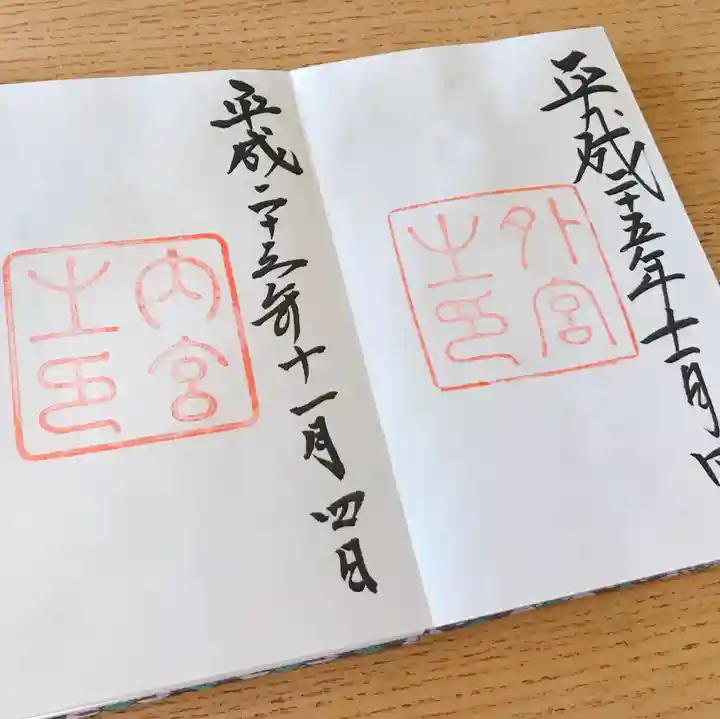 平成二十五年十一月四
外宮
之印
平成二十五年十一月四日
内宮
之印